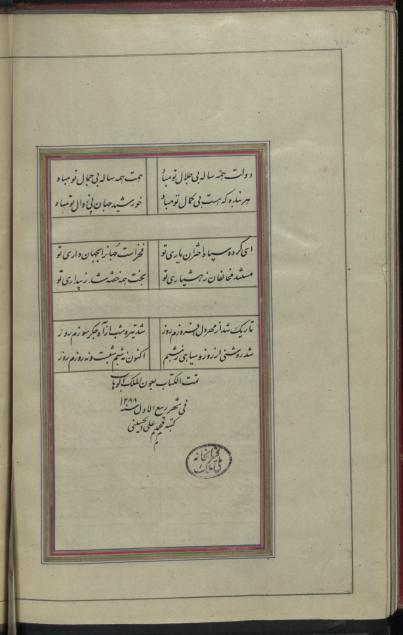 دولت همه ساله بی جلال تو مباد همت همه ساله بی جمال تو مباد
هر بنده که هست بی کمال تو مباد خورشید جهان بی زوال تو مباد
ای کرده سپاه اختران یاری تو فخر است جهان را جهانداری تو
مستند مخالفان ز هشیاری تو بخت همه خفته شد ز بیداری تو
تاریک شد از مهر دل افروزم روز شد تیره شب از آه جگر سوزم روز
شد روشنی از روز و سیاهی ز شبم اکنون نه شبم شبست و نه روزم روز
تمت الکتاب بعون الملک الوهاب
فی شهر ربیع الاول سنه ۱۲۸۸
کتبه علی الحسینی
کتابخانه ملی ملک